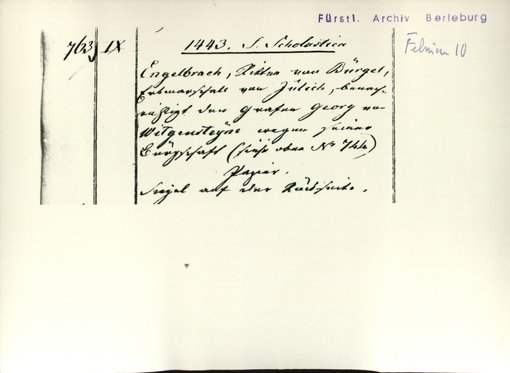 Fürstl. Archiv Berleburg
763 IX
1443. S. Scholastica
Februar 10
Engelbrach, Ritter von Bürgel,
Erbmarschall von Jülich, benach-
richtigt den Grafen Georg von
Witgensteyne wegen seiner
Bürgschaft (siehe oben No 744)
Papier.
Siegel auf der Rückseite.